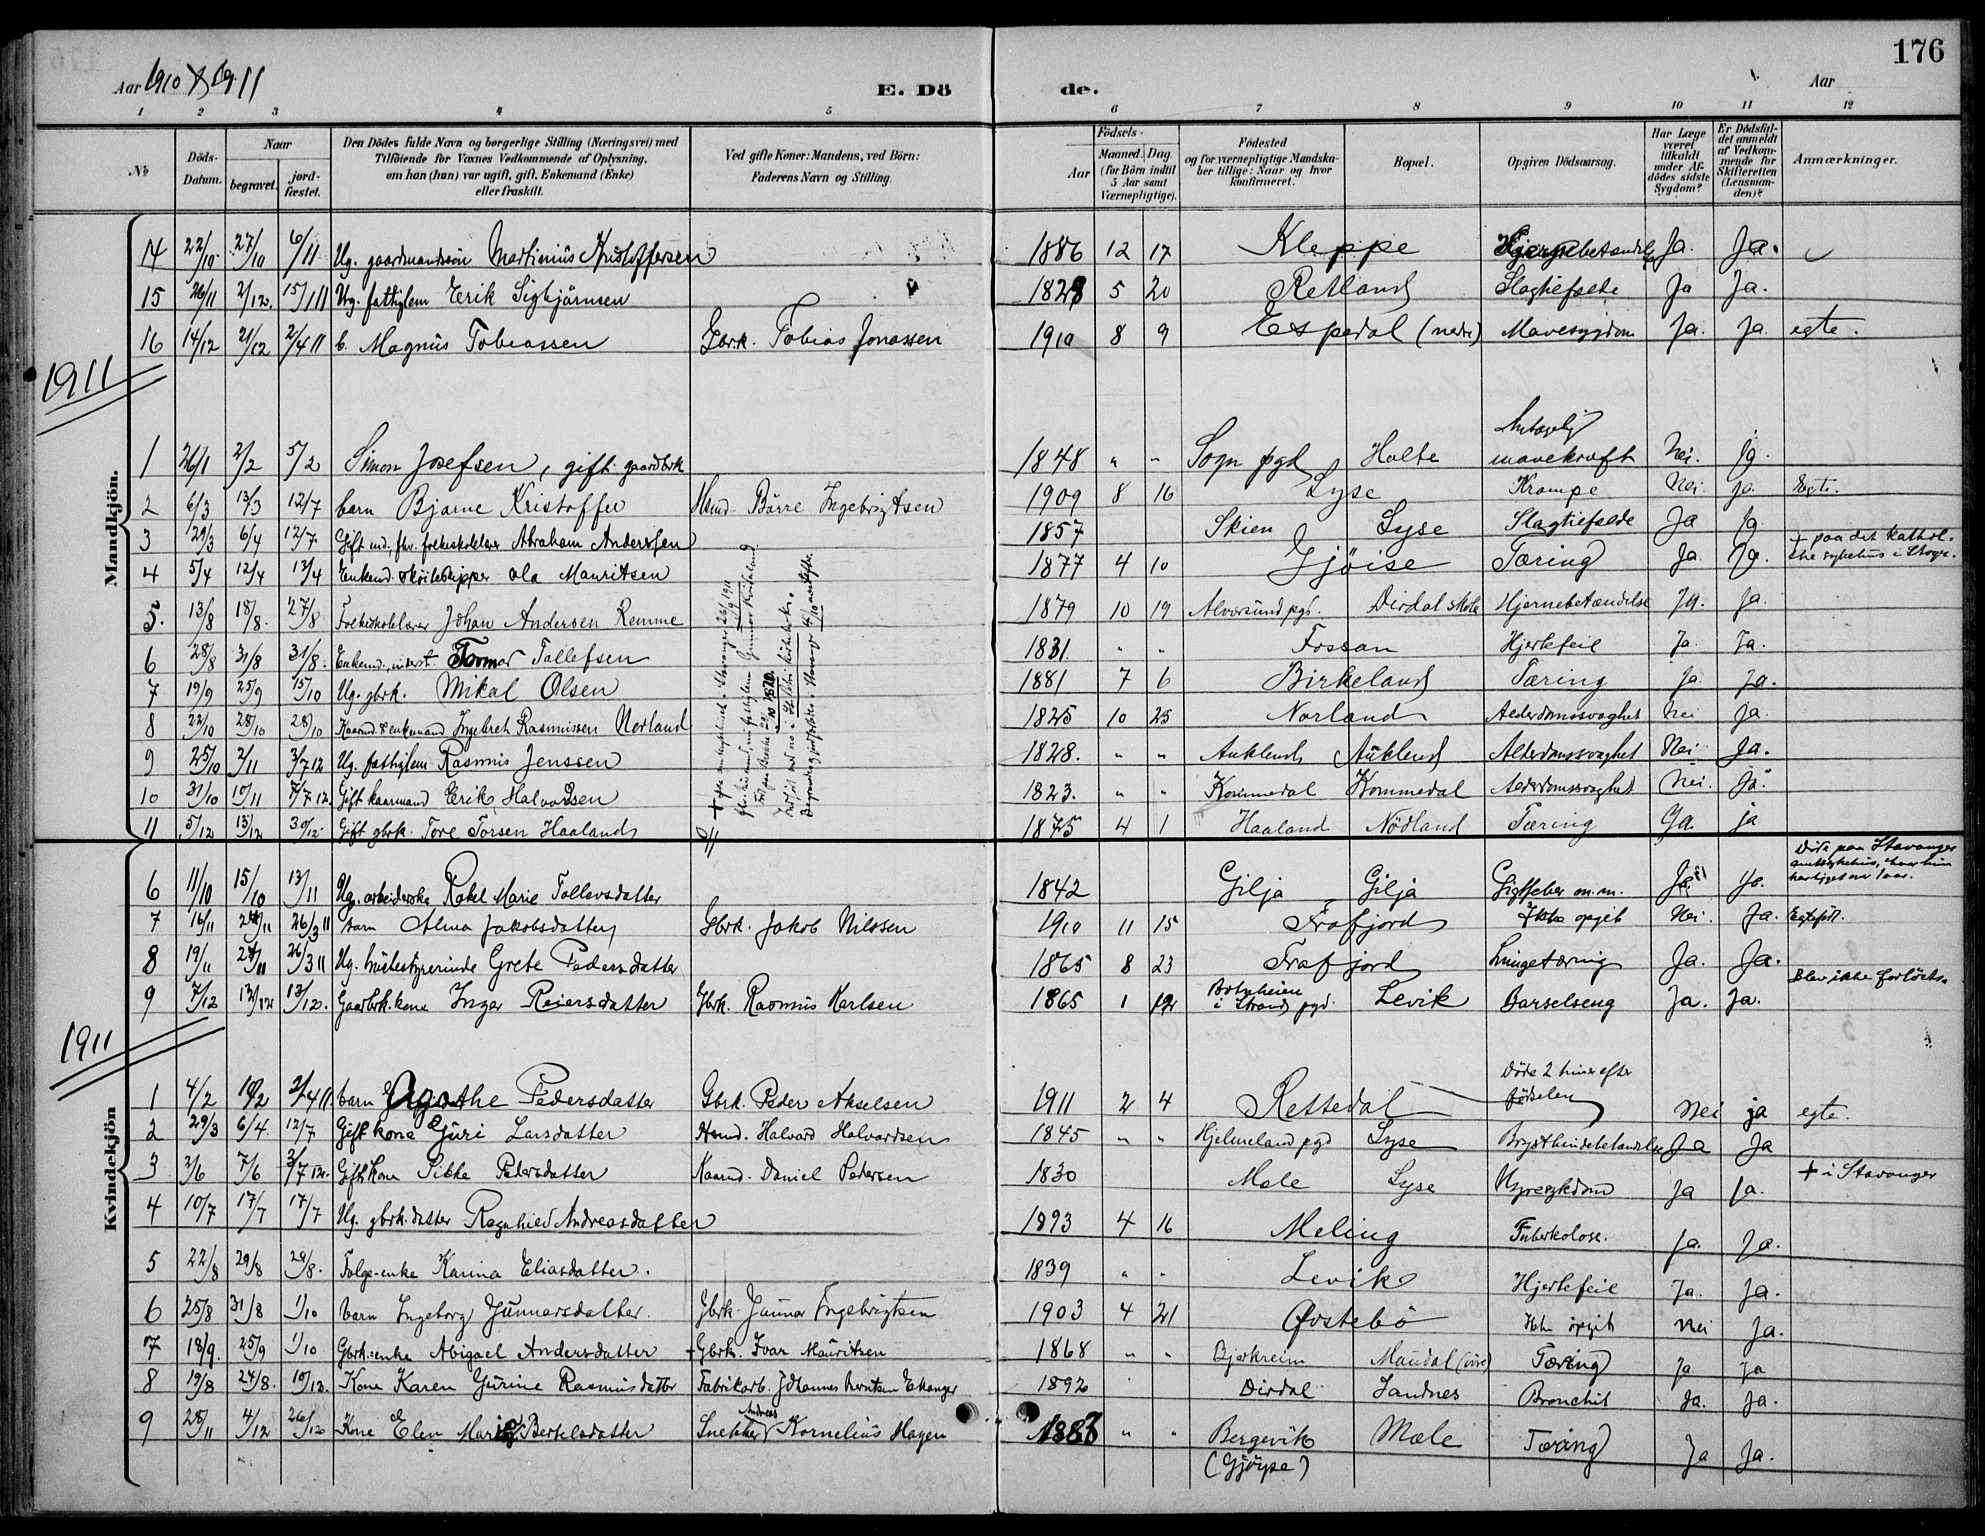 176
Aar 1910 & 1911
E. Dö
de.
Aar
1 2 3 4 5 6 7 8 9 10 11 12
No
Döds-Datum.
Naar
begravet.
jord-fæstet.
Den Dödes fulde Navn og borgerlige Stilling (Næringsvei) med
Tilföiende for Voxnes Vedkommende af Oplysning,
om han (hun) var ugift, gift, Enkemand (Enke)
eller fraskilt.
Ved gifte Koner: Mandens, ved Börn:
Faderens Navn og Stilling.
Födsels-
Aar
Maaned. Dag
(for Börn indtil
5 Aar samt
Værnepligtige).
Födested
og for værnepligtige Mandska-
ber tillige: Naar og hvor
konfirmeret.
Bopæl.
Opgiven Dödsaarsag.
Har Læge
været
tilkaldt
under Af-
dödes sidste
Sygdom?
Er Dödsfal-
det anmeldt
af Vedkom-
mende for
Skifteretten
(Lensman-
den)?
Anmærkninger.
Mandkjön.
14 22/10 27/10 6/11 Ug. gaardmandssön Martinius Kristoffersen 1886 12 17 Kleppe Ja. Ja.
15 26/11 2/12. 15/1 11 Ug. fattiglem Erik Sigbjörnsen 1828 5 20 Retland Slagtilfælde Ja Ja.
16 14/12 21/12 2/4 11 b. Magnus Tobiassen Gbrk. Tobias Jonassen 1910 8 9 Espedal (nedre) Mavesygdom Ja. Ja. egte.
1911
1 26/1 2/2 5/2 Simon Josefsen, gift gaardbrk 1848 " " Sogn pgd Holte Antagelig
mavekræft Nei. ja.
2 6/3 13/3 12/7 barn Bjarne Kristoffer Hsmd. Börre Ingebrigtsen 1909 8 16 Lyse Krampe Nei ja. Egte.
3 29/3 6/4 12/7 Gift md. fhv. folkeskolelærer Abraham Anderssen 1857 Skien Lyse Slagtilfælde Ja Ja
4 5/4 12/4 13/4 Enkemd. sköiteskipper Ola Mauritsen 1877 4 10 Gjöise Tæring Ja. Ja. + paa det kathol-
ske sykehus i Stvgr.
5. 13/8 18/8. 27/8 Folkeskolelærer Johan Andersen Remme 1879 10 19 Alversund pgd. Dirdal skole Hjernebetændelse Ja. Ja.
6 28/8 31/8 31/8. Enkemd., inderst. Tollefsen 1831. " " Fossan Hjertefeil Ja. Ja.
7 19/9 25/9 15/10 Ug. gbrk. Mikal Olsen 1881 7 6 Birkeland Tæring Ja. Ja.
8 22/10 28/10 28/10 Kaarmd & enkemand Ingebret Rasmussen Norland 1825 10 25 Norland Alderdomssvaghet Nei Ja.
9 25/10 2/11 3/7 12 Ug. fattiglem Rasmus Jenssen 1828. " " Auklend Auklend Alderdomssvaghet Nei Ja.
10 31/10 10/11 7/7 12. Gift kaarmand Erik Halvorsen 1823. " " Kommedal Kommedal Alderdomssvaghet Nei. Ja.
11 5/12 13/12 30/12. Gift gbrk. Tore Torsen Haaland 1875 4 1 Haaland Nödland Tæring Ja. ja
Kvindekjön
6 11/10 15/10 13/11 Ug. arbeiderske Rakel Marie Tollevsdatter 1842 Gilja Gilja Gigtfeber m.m. Ja. Ja. Döde paa Stavanger
amtssykehus, hvor hun
har ligget over 1 aar.
7 16/11 24/11 26/3 11 barn Alma Jakobsdatter Gbrk. Jakob Nilssen 1910 11 15 Frafjord Ikke opgit Nei. Ja. Egtefödt.
8 19/11 24/11 26/3 11 Ug. husbestyrerinde Grete Pedersdatter 1865 8 23 Frafjord Lungetæring Ja. Ja.
9 7/12 13/12 13/12. Gaardbrk. kone Inger Reiersdatter Gbrk. Rasmus Karlsen 1865 1 12 Botnheien
i Strand pgd. Levik Barselseng Ja. Ja. Blev ikke forlöst.
1911
1 4/2 10/2 2/4 11 barn Agathe Pedersdatter Gbrk. Peder Akselsen 1911 2 4 Rettedal Döde 2 timer efter
födselen Nei ja egte.
2 29/3 6/4. 12/7 Gift kone Guri Larsdatter Hsmd. Halvard Halvardsen 1845 " " Hjelmeland pgd Lyse Brysthindebetændelse Ja Ja
3 2/6 7/6 3/7 12. Gift kone Sikke Pedersdatter Kaarmd. Daniel Pedersen 1830 Mæle Lyse Nyresykdom Ja Ja. + i Stavanger
4 10/7 17/7 17/7 Ug. gbrk. datter Ragnhild Andreasdatter 1893 4 16 Meling Tuberkolose. Ja. Ja.
5 22/8 29/8 29/8. Folge-enke Karina Eliasdatter. 1839 " " Levik Hjertefeil Ja. Ja.
6 25/8 31/8 1/10 barn Ingeborg Gunnarsdatter. Gbrk. Gunnar Ingebrigtsen 1903 4 21 Övstebö Ikke opgit Nei Ja.
7 18/9. 25/9 1/10 Gbrk.-enke Abigael Andersdatter + Gbrk. Ivar Mauritsen 1868 " " Bjerkreim Maudal (övre) Tæring Ja Ja
8 19/8 24/8. 10/12. Kone Karen Gurine Rasmusdatter Fabrikarb. Johannes Knutsen Ekanger 1892 Dirdal Sandnes Bronchit Ja. Ja.
9 28/11 4/12 26/12 Kone Elen Marie Bertelsdatter Snekker Andreas Kornelius Hagen 1883 " " Bergevik
(Gjöyse) Mæle Tæring Ja Ja.